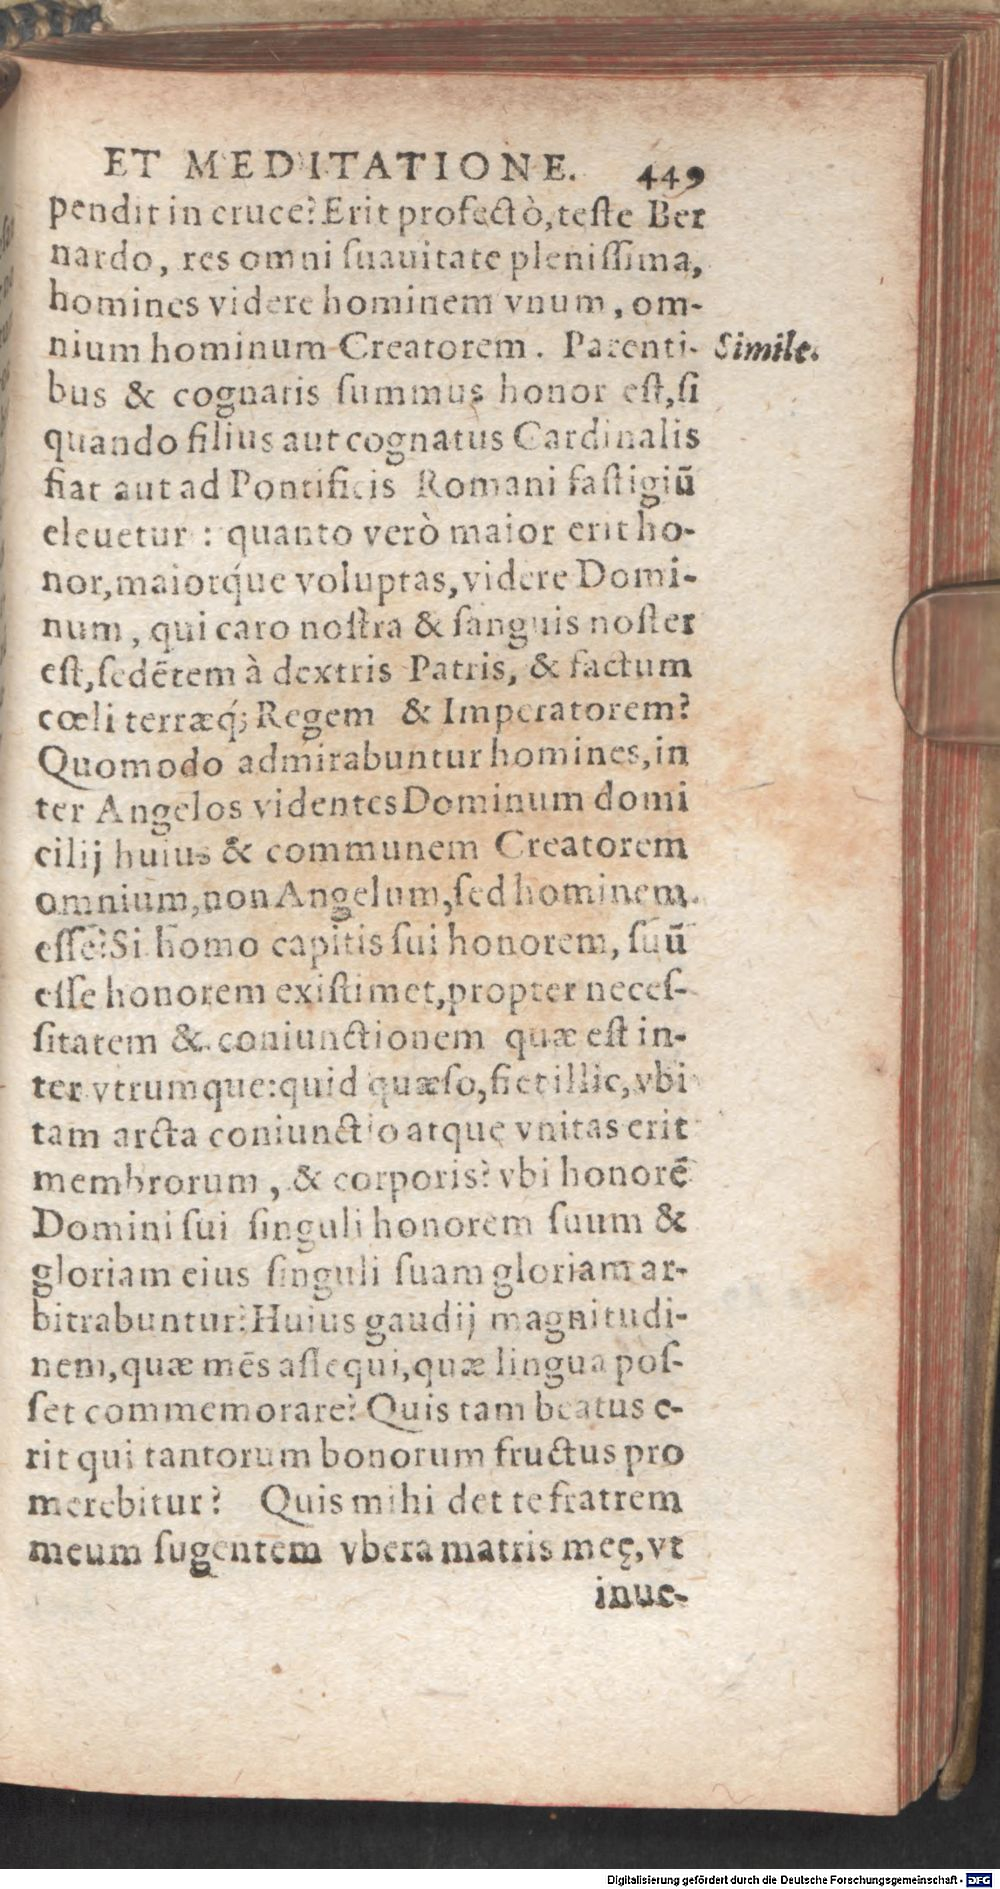 ET MEDITATIONE. 449
pendit in cruce? Erit profectò, teſte Ber
nardo, res omni ſuauitate pleniſſima,
homines videre hominem vnum, om-
nium hominum Creatorem. Parenti- Simile.
bus & cognatis ſummus honor eſt, ſi
quando filius aut cognatus Cardinalis
fiat aut ad Pontificis Romani faſtigiū
eleuetur : quanto verò maior erit ho-
nor, maiorq́ue voluptas, videre Domi-
num, qui caro noſtra & ſanguis noſter
eſt, ſedẽtem à dextris Patris, & factum
cœli terræq́; Regem & Imperatorem?
Quomodo admirabuntur homines, in
ter Angelos videntes Dominum domi
cilij huius & communem Creatorem
omnium, non Angelum, ſed hominem
eſſe? Si homo capitis ſui honorem, ſuū
eſſe honorem exiſtimet, propter neceſ-
ſitatem & coniunctionem quæ eſt in-
ter vtrumque: quid quæſo, fiet illic, vbi
tam arcta coniunctio atque vnitas erit
membrorum, & corporis? vbi honorẽ
Domini ſui ſinguli honorem ſuum &
gloriam eius ſinguli ſuam gloriam ar-
bitrabuntur? Huius gaudij magnitudi-
nem, quæ mẽs aſſequi, quæ lingua poſ-
ſet commemorare? Quis tam beatus e-
rit qui tantorum bonorum fructus pro
merebitur? Quis mihi det te fratrem
meum ſugentem vbera matris meę, vt
inue-
Digitalisierung gefördert durch die Deutsche Forschungsgemeinschaft - DFG